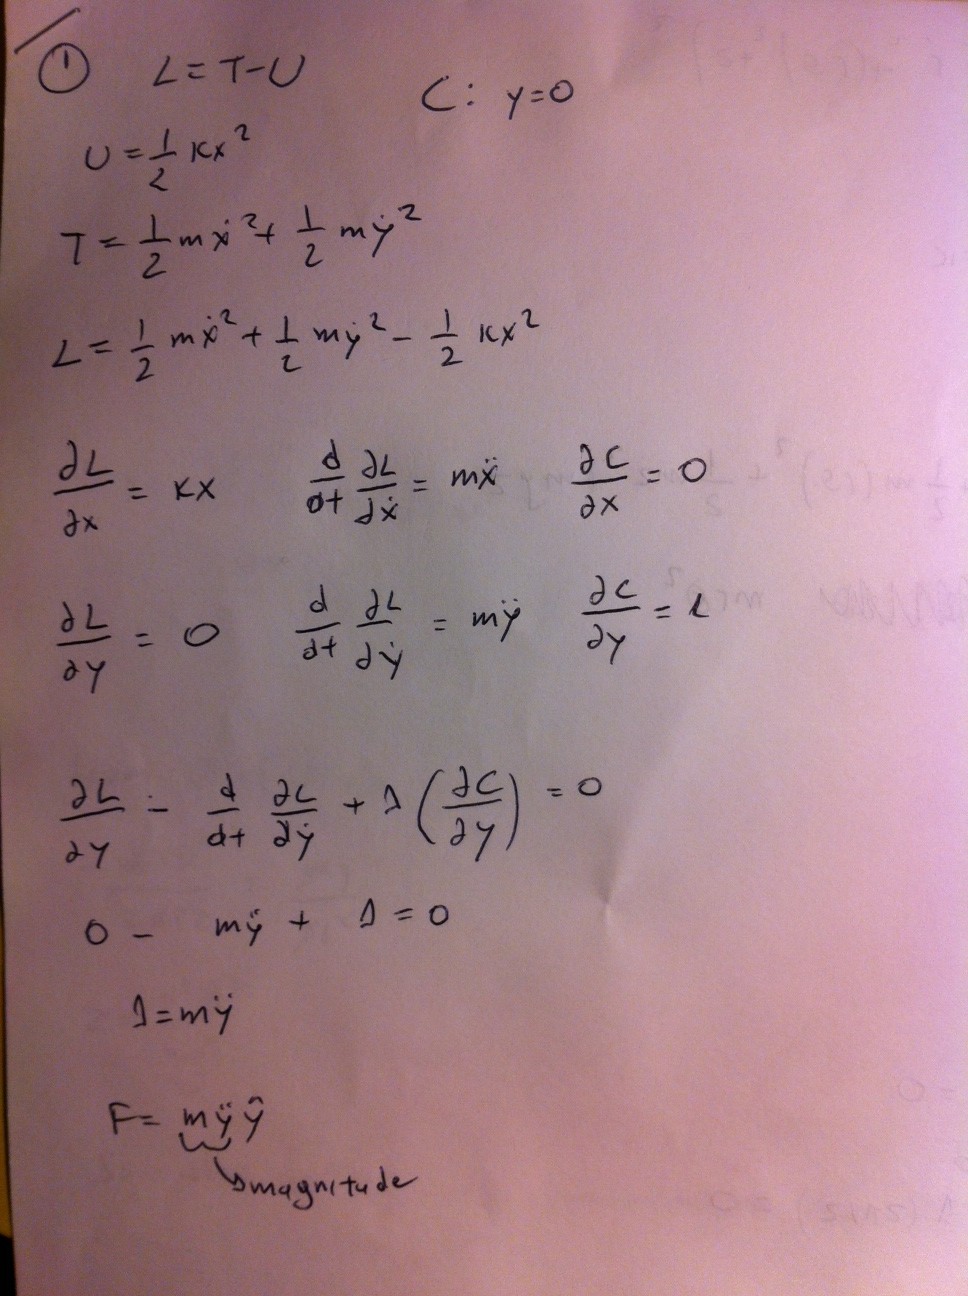 ① L = T-U
C: y=0
U = 1/2 kx²
T = 1/2 mẋ² + 1/2 mẏ²
L = 1/2 mẋ² + 1/2 mẏ² - 1/2 kx²
∂L/∂x = kx   d/dt ∂L/∂ẋ = mẍ   ∂C/∂x = 0
∂L/∂y = 0   d/dt ∂L/∂ẏ = mÿ   ∂C/∂y = 1
∂L/∂y - d/dt ∂L/∂ẏ + λ(∂C/∂y) = 0
0 - mÿ + λ = 0
λ = mÿ
F = mÿ ŷ
magnitude